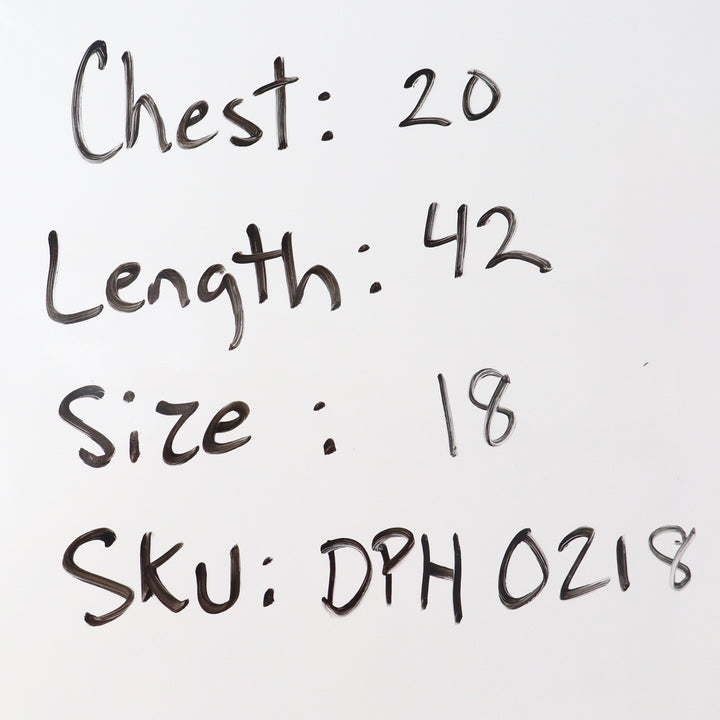 Chest: 20
Length: 42
Size: 18
SKU: DPH 0218